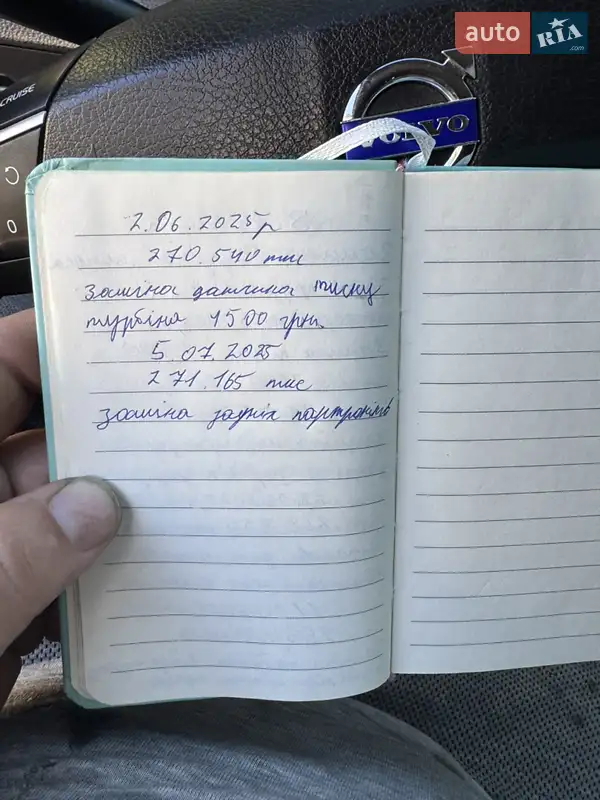 auto RIA .com
CRUISE
VOLVO
2.06.2025р
270.540 тис
заміна датчика тиску
турбіна 1500 грн.
5.07.2025
271.165 тис
заміна задніх